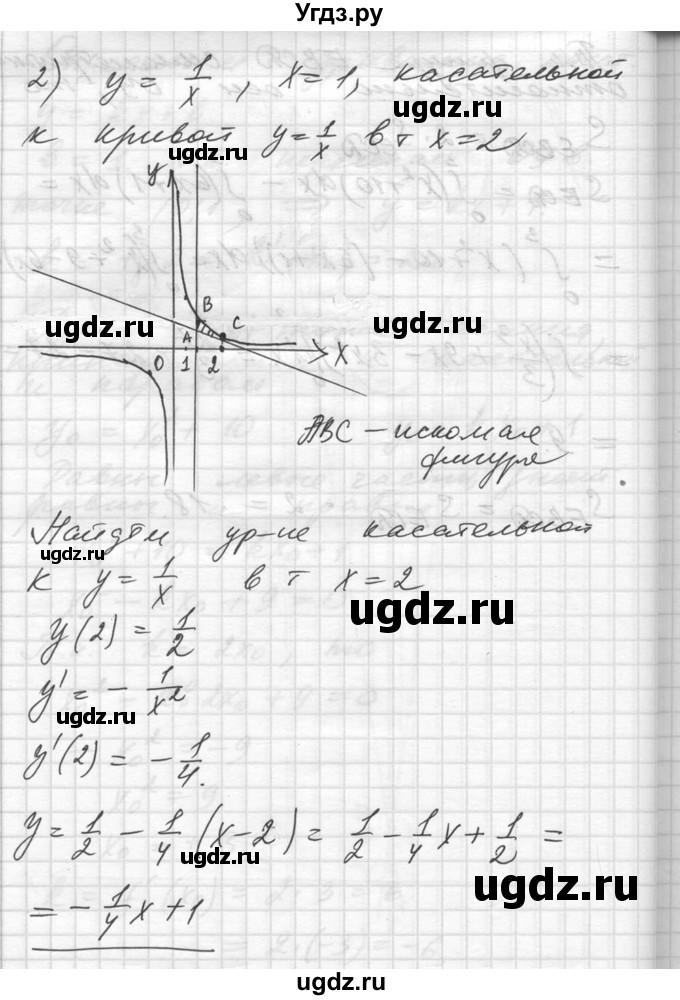 Угдз.ру
2) y = 1/x , x = 1, касательной
к кривой y = 1/x в т x = 2
ugdz.ru
ugdz.ru
y
B
C
A
0
1
2
X
ugdz.ru
ugdz.ru
ABC – искомая
фигура
ugdz.ru
ugdz.ru
Найдём ур-ие касательной
к y = 1/x в т x = 2
ugdz.ru
ugdz.ru
y(2) = 1/2
y' = - 1/x²
ugdz.ru
ugdz.ru
y'(2) = - 1/4.
y = 1/2 - 1/4 (x-2) = 1/2 - 1/4 x + 1/2 =
ugdz.ru
ugdz.ru
= - 1/4 x + 1
ugdz.ru
ugdz.ru